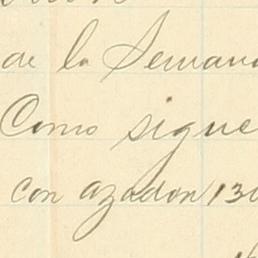 de la Semana
Como sigue
con azadon 130